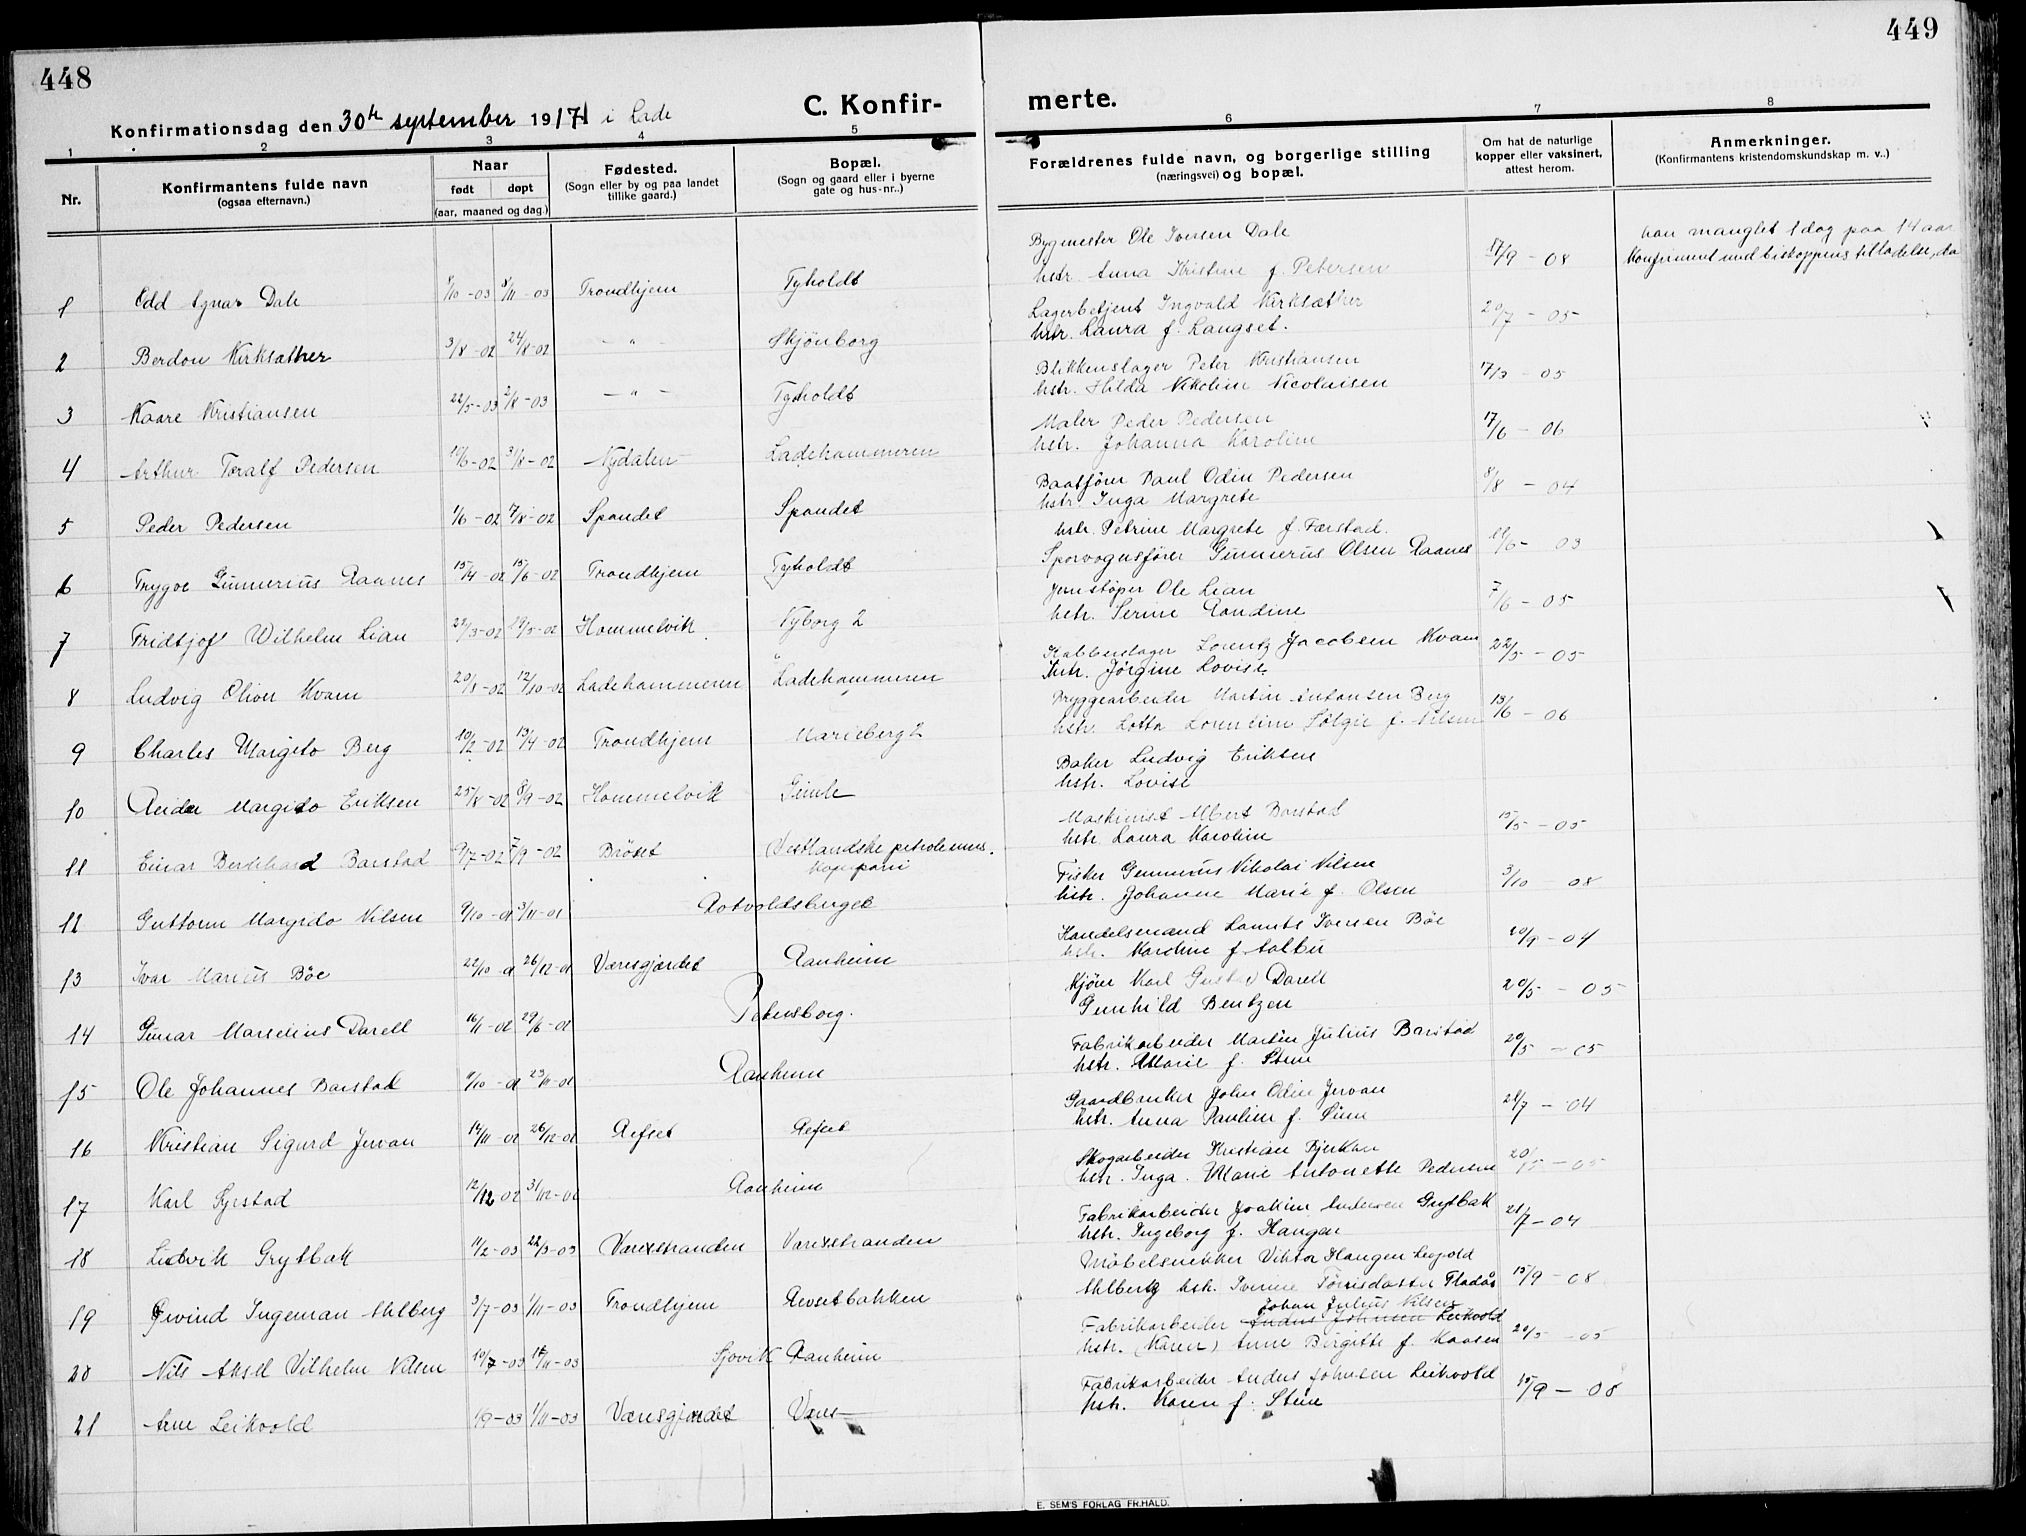 448
449
Konfirmationsdag den 30te september 1917 i Lade
C. Konfirmerte.
1 2 3 4 5 6 7 8
Nr.
Konfirmantens fulde navn
(ogsaa efternavn.)
Naar
født døpt
(aar, maaned og dag.)
Fødested.
(Sogn eller by og paa landet
tillike gaard.)
Bopæl.
(Sogn og gaard eller i byerne
gate og hus-nr..)
Forældrenes fulde navn, og borgerlige stilling
(næringsvei) og bopæl.
Om hat de naturlige
kopper eller vaksinert,
attest herom.
Anmerkninger.
(Konfirmantens kristendomskundskap m. v..)
han manglet 1 dag paa 14 aar
Konfirmert med biskoppens tilladelse, da
Bygmester Ole Iversen Dale
1 Odd Dale 8/10-03 8/11-03 Trondhjem Tyholdt hstr. Anna Kristine f. Petersen 17/9-08
Lagerbetjent Ingvald Kirksæther
2 Berdon Kirksæther 3/8-02 24/8-02 - " - Skjönborg hstr. Laura f. Langset. 20/7-05
Blikkenslager Peter Kristiansen
3 Kaare Kristiansen 22/5-03 2/8-03 - " - Tyholdt hstr. Hilda Nikoline Nicolaisen 17/3-05
Maler Peder Pedersen
4 Arthur Toralf Pedersen 10/6-02 31/8-02 Nydalen Ladehammeren hstr. Johanna Karoline 17/6-06
Baatfører Paul Odin Pedersen
5 Peder Pedersen 1/6-02 17/8-02 Spandet Spandet hstr. Inga Margrete 8/8-04
hstr. Petrine Margrete f. Færstad.
6 Trygve Gunnerius Raanes 15/4-02 15/6-02 Trondhjem Tyholdt Sporvognsfører Gunnerius Olsen Raanes 11/6-03
Jernstøper Ole Lian
7 Fridtjof Wilhelm Lian 22/3-02 19/5-02 Hommelvik Nyborg 2 hstr. Serine Randine 7/6-05
Lorentz Jacobsen Kvam
8 Ludvig Oliver Kvam 20/8-02 12/10-02 Ladehammeren Ladehammeren hstr. Jörgine Lovise 22/5-05
Bryggearbeider Martin Antonsen Berg
9 Charles Margido Berg 10/2-02 13/4-02 Trondhjem Marieberg 2 hstr. Lotta Lorentine f. Nilsen 13/6-06
Baker Ludvig Eriksen
10 Reidar Margido Eriksen 25/8-02 8/9-02 Hommelvik Gimle hstr. Lovise
Maskinist Albert Barstad
11 Einar Bernhard Barstad 9/7-02 7/9-02 Bröset Vestlandske petroleums- kompani hstr. Laura Karoline 15/5-05
Fisker Gunnerius Nikolai Nilsen
12 Guttorm Margido Nilsen 9/10-01 3/11-01 Rotvoldsberget hstr. Johanne Marie f. Olsen 3/10-08
Handelsmand Laurits Iversen Böe
13 Ivar Marius Böe 22/10-01 26/12-01 Væresgjærdet Ranheim hstr. f. 20/9-04
Kjörer Karl Gustav Darell
14 Gunar Darell 16/11-01 29/6-01 Petersborg. Gunhild Bentzen 20/5-05
Fabrikarbeider Martin Julius Barstad
15 Ole Johannes Barstad 9/10-01 23/11-01 Ranheim hstr. Marie f. Stene 20/5-05
Gaardbruker John Odin Jervan
16 Kristian Sigurd Jervan 14/11-01 26/12-01 Refset Refset hstr. Anna Pauline f. 21/7-04
Skogarbeider Kristian
17 Karl 12/12-02 31/12-02 Ranheim hstr. Inga Marie Antonette Pedersen 20/5-05
Fabrikarbeider Joakim Andersen Grytbak
18 Ludvik Grytbak 11/2-03 22/3-03 Værestranden Værestranden hstr. Ingeborg f. Haugan 21/7-04
Möbelsnekker Viktor Haugen Leopold
19 Øivind Ingeman Ahlberg 3/7-03 1/11-03 Trondhjem Revetbakken Ahlberg hstr. Iverine 15/9-08
Johan Julius Nilsen
Fabrikarbeider Anders Johnsen Leikvold
20 Nils Aksel Vilhelm Nilsen 10/7-03 15/11-03 Sjövik Ranheim hstr. (Karen) Anne Birgitte f. Kaasen 20/5-05
Fabrikarbeider Anders Johnsen Leikvold
21 Arne Leikvold 1/9-03 1/11-03 Væresgjærdet Være hstr. Karen f. Stene 15/9-08
E. SEM'S FORLAG FR.HALD.